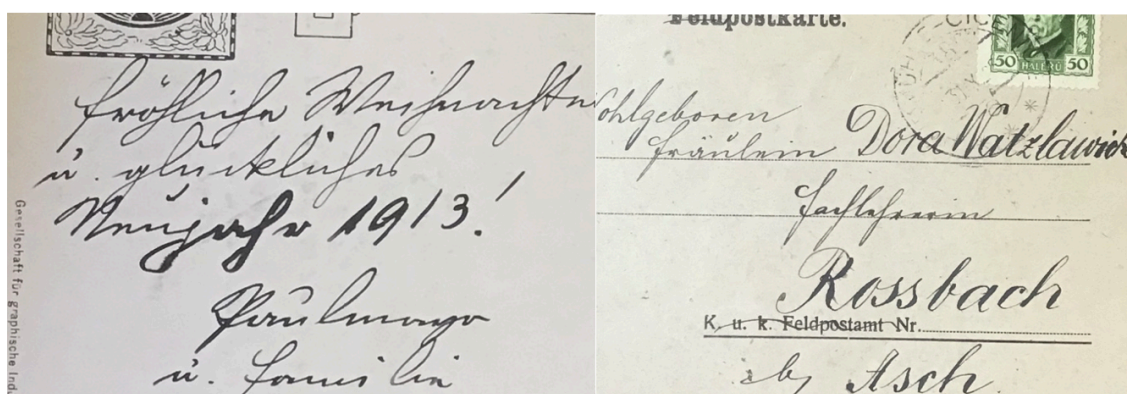 fröhliche Weihnachte
u. glückliches
Neujahr 1913!
Paulmayr
u. Familie
Gesellschaft für graphische Ind.
Feldpostkarte.
50 HALERU 50
ohlgeboren
Fräulein Dora Watzlawick
Fachlehrerin
Rossbach
K. u. k. Feldpostamt Nr.
Asch.